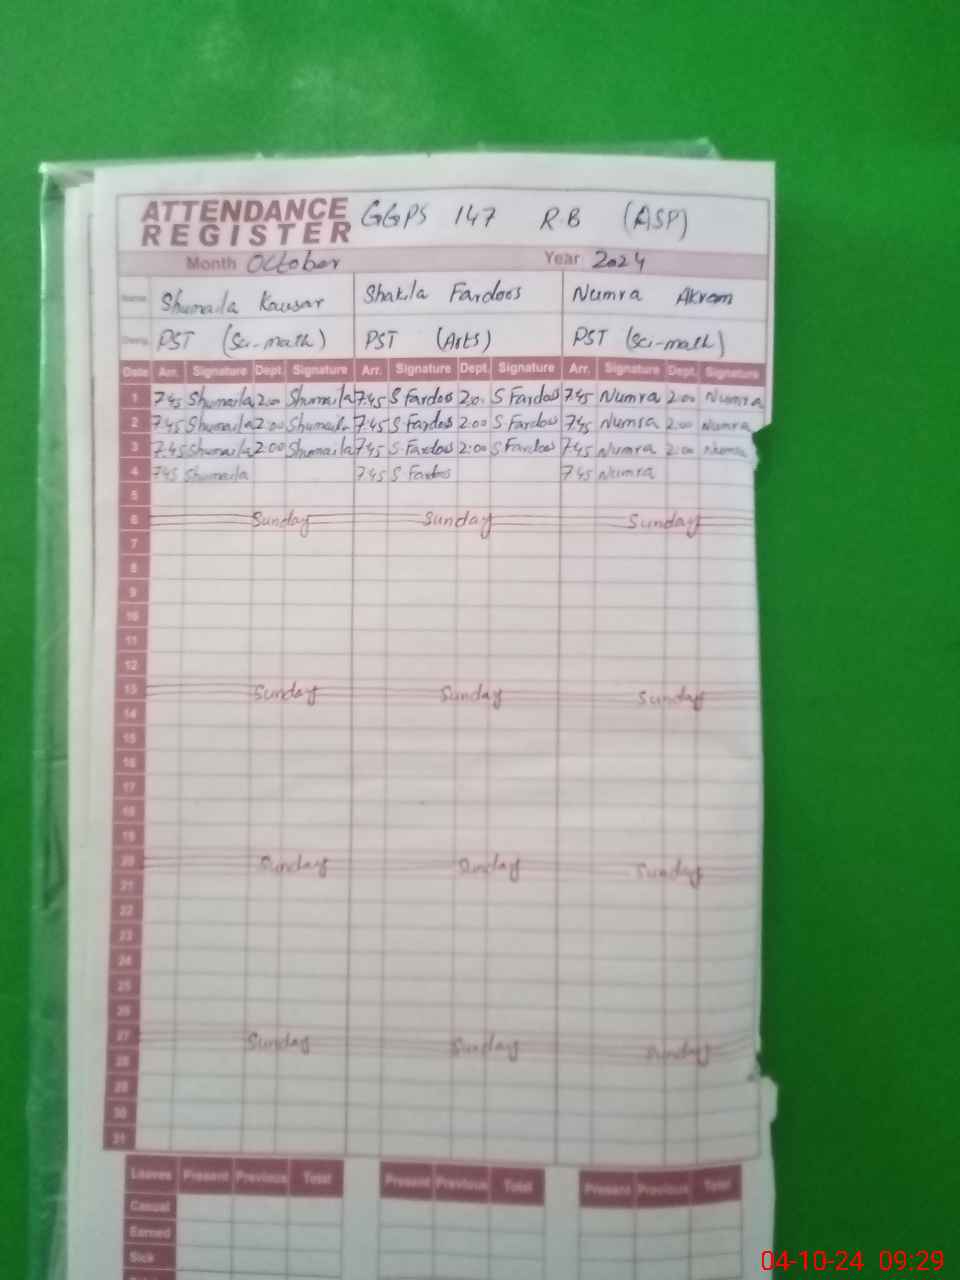 ATTENDANCE REGISTER GGPS 147 R B (ASP)
Month October Year 2024
Name Shumaila Kausar Shakila Fardoos Numra Akram
Desig. PST (Sci-math) PST (Arts) PST (Sci-math)
Date Arr. Signature Dept. Signature Arr. Signature Dept. Signature Arr. Signature Dept. Signature
1 7:45 Shumaila 2:00 Shumaila 7:45 S Fardos 2:0. S Fardos 7:45 Numra 2:00 Numra
2 7:45 Shumaila 2:00 Shumaila 7:45 S Fardos 2:00 S Fardos 7:45 Numra 2:00 Numra
3 7:45 Shumaila 2:00 Shumaila 7:45 S Fardos 2:00 S Fardos 7:45 Numra 2:00 Numra
4 7:45 Shumaila 7:45 S Fardos 7:45 Numra
5
6 Sunday Sunday Sunday
7
8
9
10
11
12
13 Sunday Sunday Sunday
14
15
16
17
18
19
20 Sunday Sunday Sunday
21
22
23
24
25
26
27 Sunday Sunday Sunday
28
29
30
31
Leaves Present Previous Total Present Previous Total Present Previous Total
Casual
Earned
Sick
04-10-24 09:29